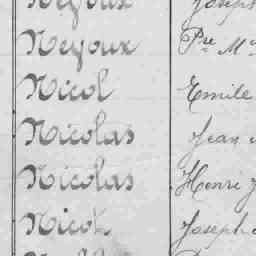 Neyoux Pre
Nicol Emile
Nicolas Jean
Nicolas Henri J
Nicot Joseph